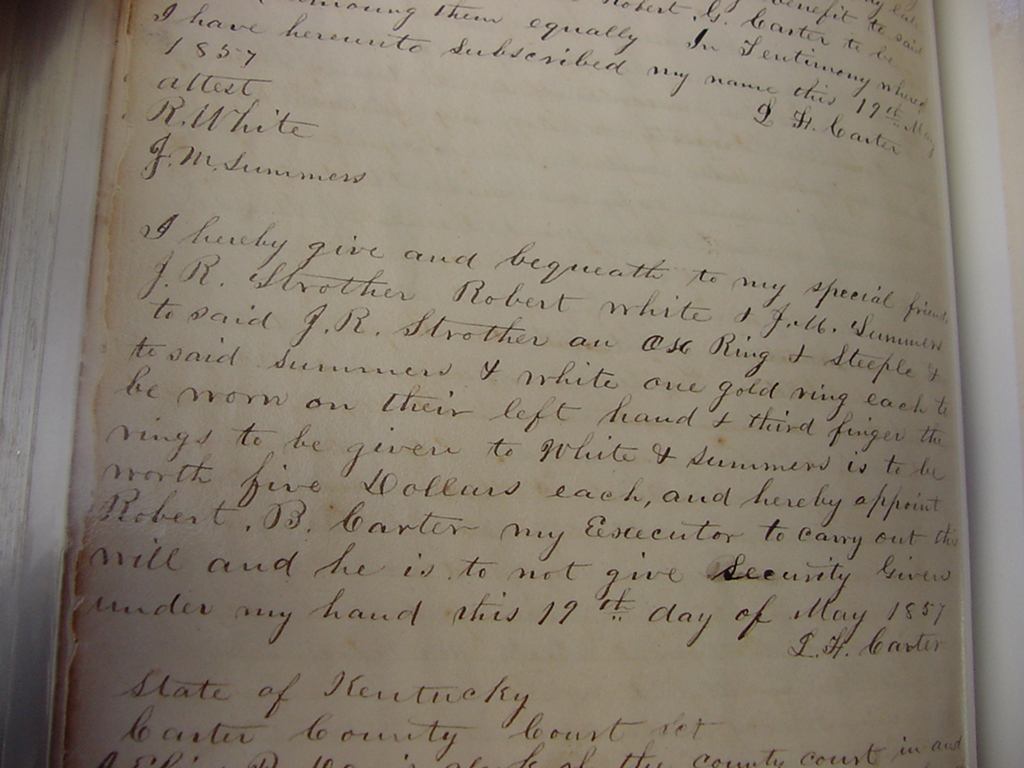 Robert B. Carter to be
amoung them equally In Testimony where
I have hereunto subscribed my name this 19th
1857
L. H. Carter
attest
R. White
J. M. Summers
I hereby give and bequeath to my special friends
J. R. Strother Robert White & J. M. Summers
to said J. R. Strother an ox Ring & Steeple &
to said Summers & White one gold ring each to
be worn on their left hand & third finger the
rings to be given to White & Summers is to be
worth five Dollars each, and hereby appoint
Robert. B. Carter my Executor to carry out this
will and he is to not give Security Given
under my hand this 19th day of May 1857
L. H. Carter
State of Kentucky
Carter County Court Sct
county court in and